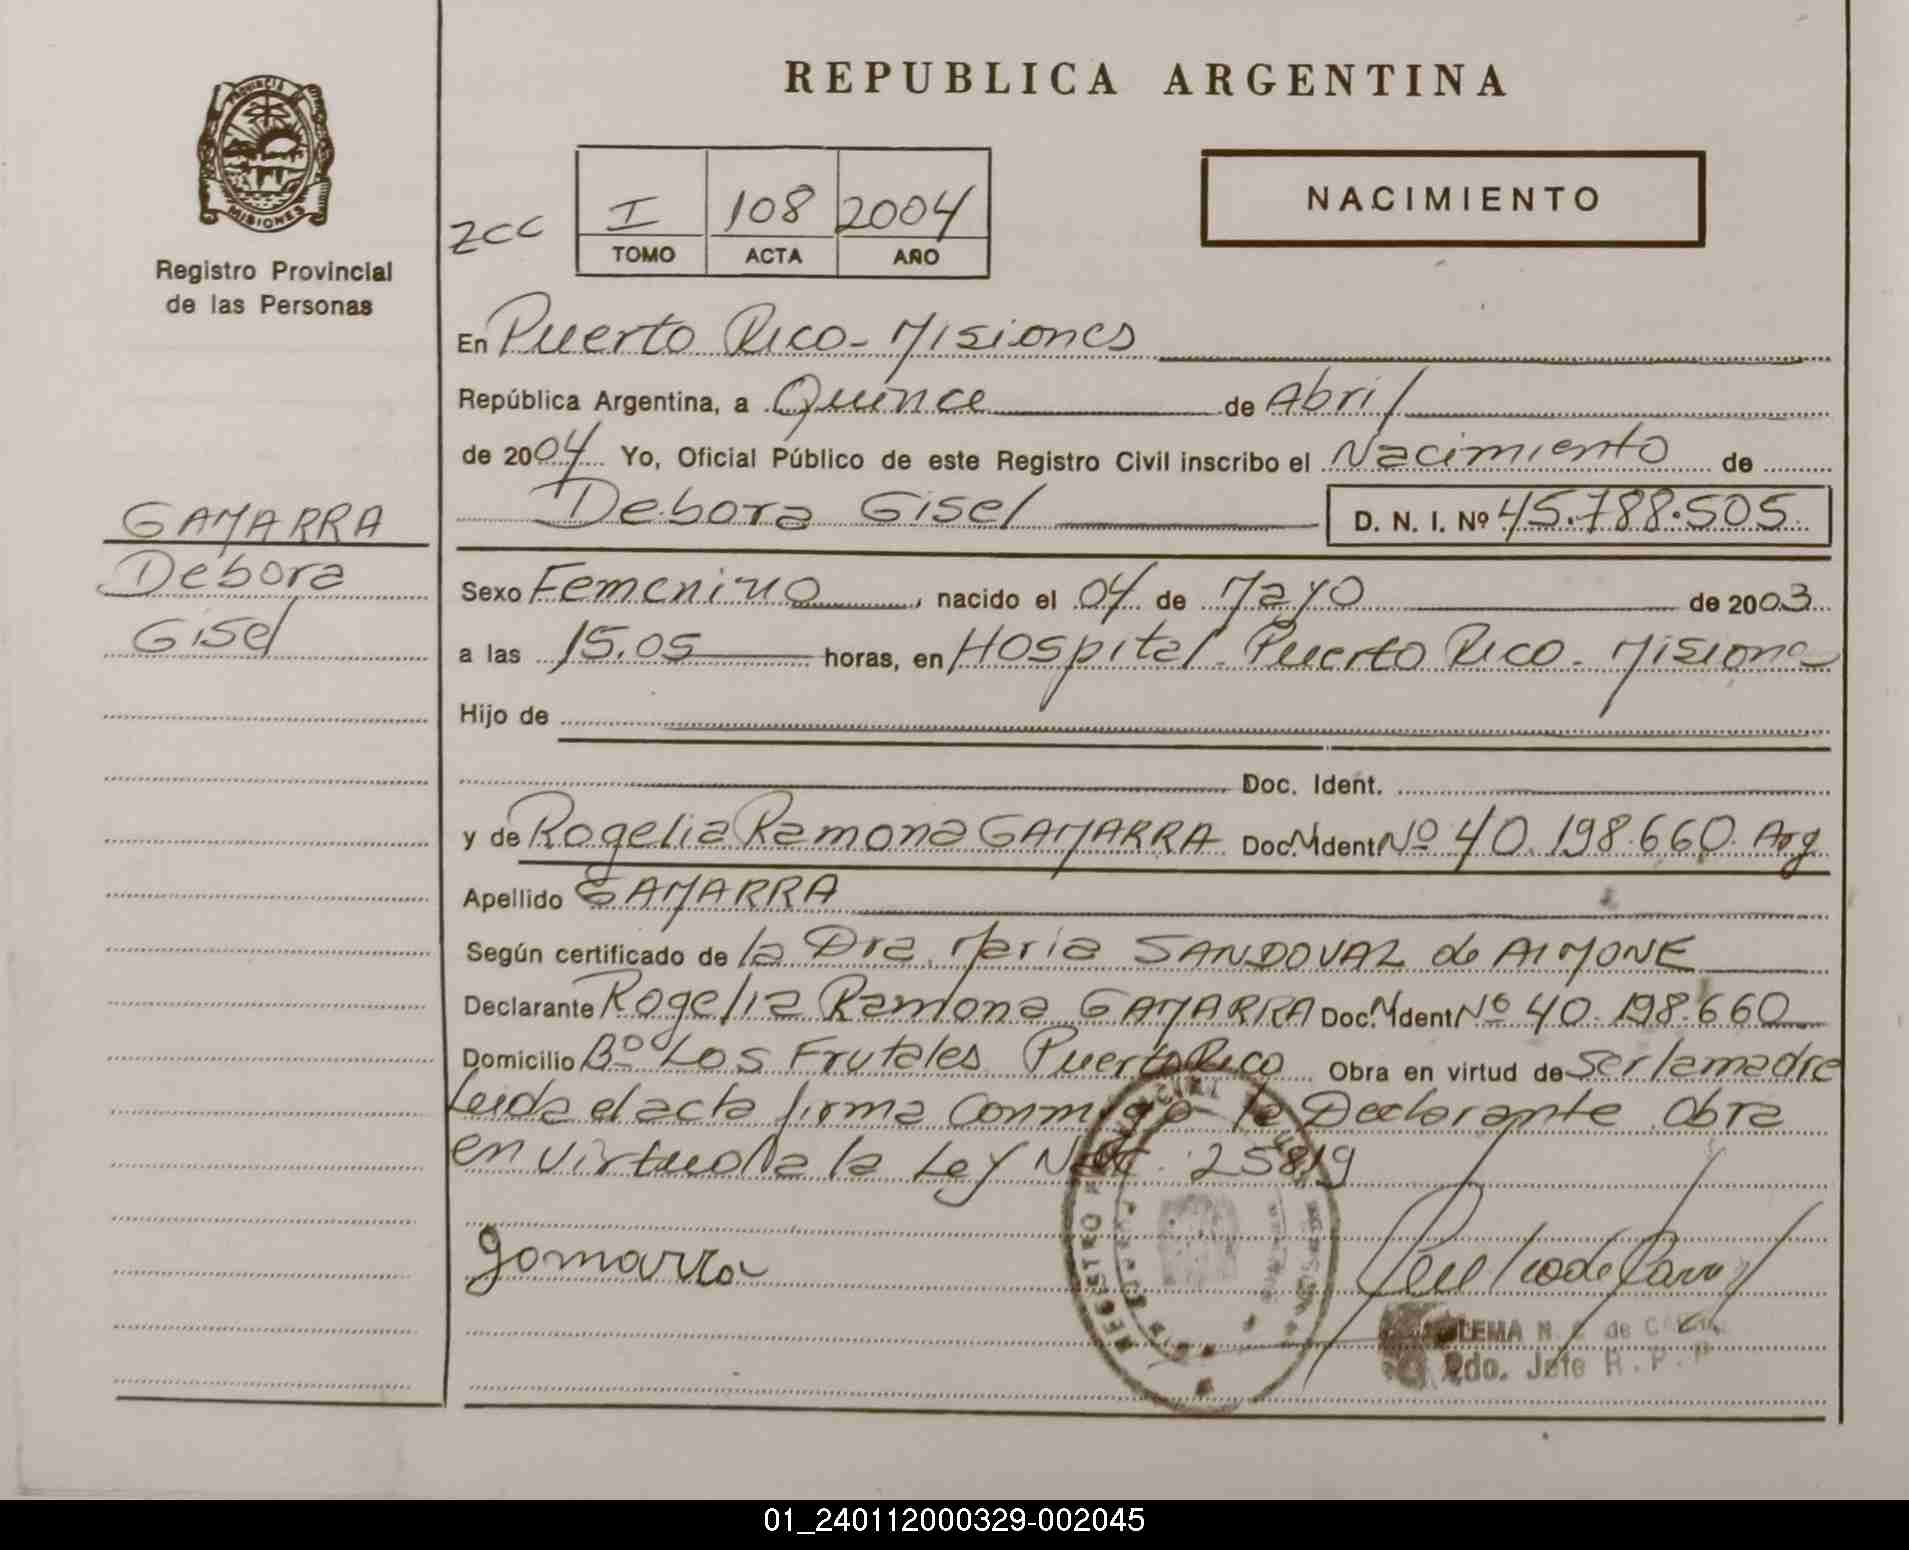 REPUBLICA ARGENTINA
PROVINCIA DE
MISIONES
Registro Provincial
de las Personas
zcc
I 108 2004
TOMO ACTA AÑO
NACIMIENTO
En Puerto Rico - Misiones
República Argentina, a Quince de Abril
de 2004 Yo, Oficial Público de este Registro Civil inscribo el Nacimiento de
Debora Gisel D. N. I. Nº 45.788.505
GAMARRA
Debora
Gisel
Sexo Femenino, nacido el 04 de Mayo de 2003
a las 15.05 horas, en Hospital Puerto Rico - Misiones
Hijo de
Doc. Ident.
y de Rogelia Ramona GAMARRA Doc. Ident Nº 40.198.660 Arg
Apellido GAMARRA
Según certificado de la Dra. Maria SANDOVAL de AIMONE
Declarante Rogelia Ramona GAMARRA Doc. Ident Nº 40.198.660
Domicilio Bº Los Frutales Puerto Rico Obra en virtud de Ser la madre
Leida el acta firma conmigo la Declarante Obra
en virtud a la Ley Nac. 25819
gamarra
REGISTRO
LEMA N. C. de
Pdo. Jefe R. P. P
01_240112000329-002045